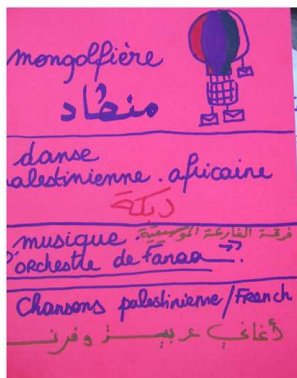 mongolfière
منطاد
danse
palestinienne. africaine
دبكة
musique. فرقة الفارعة الموسيقية
l'orchestre de Faraa
Chansons palestinienne/French
أغاني عربية وفرنـ